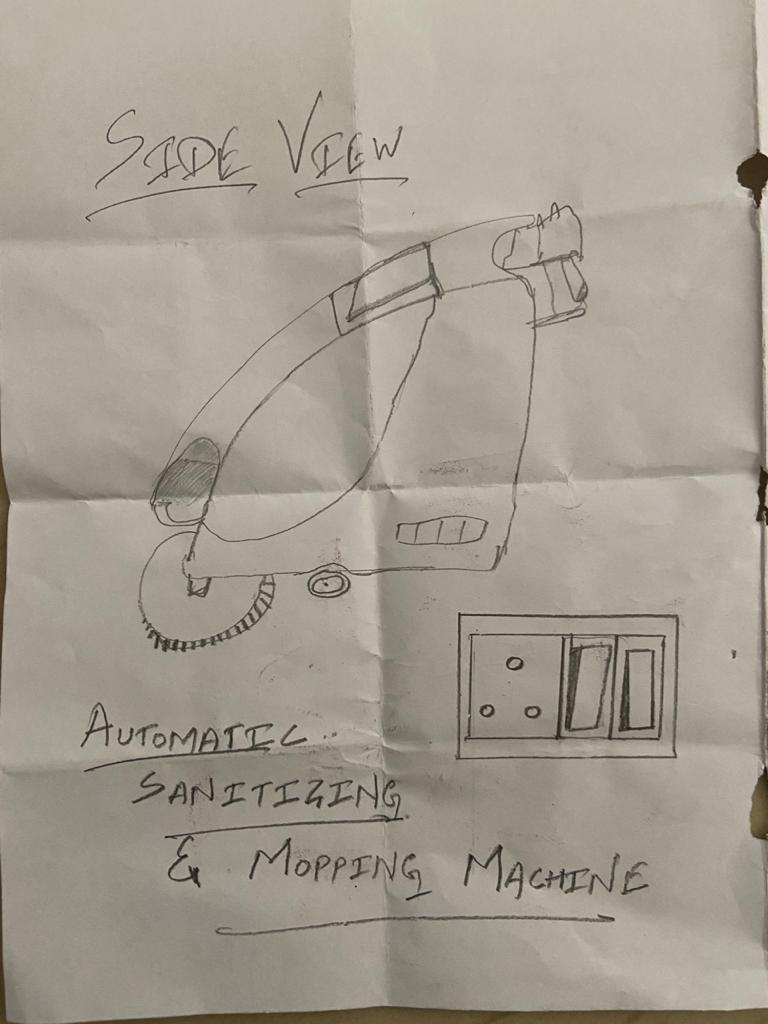 SIDE VIEW
AUTOMATIC
SANITIZING
& MOPPING MACHINE